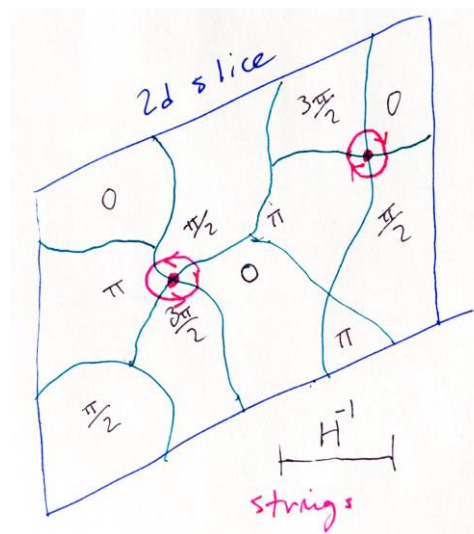 2d slice
3π/2
0
0
π/2
π
π/2
0
π
3π/2
π
π/2
H⁻¹
strings